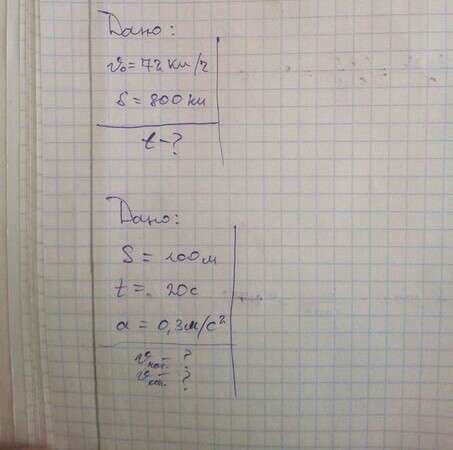 Дано:
v₀ = 72 км/ч
S = 800 км
t - ?
Дано:
S = 100 м
t = 20 с
a = 0,3 м/с²
v нач. - ?
v кон. - ?